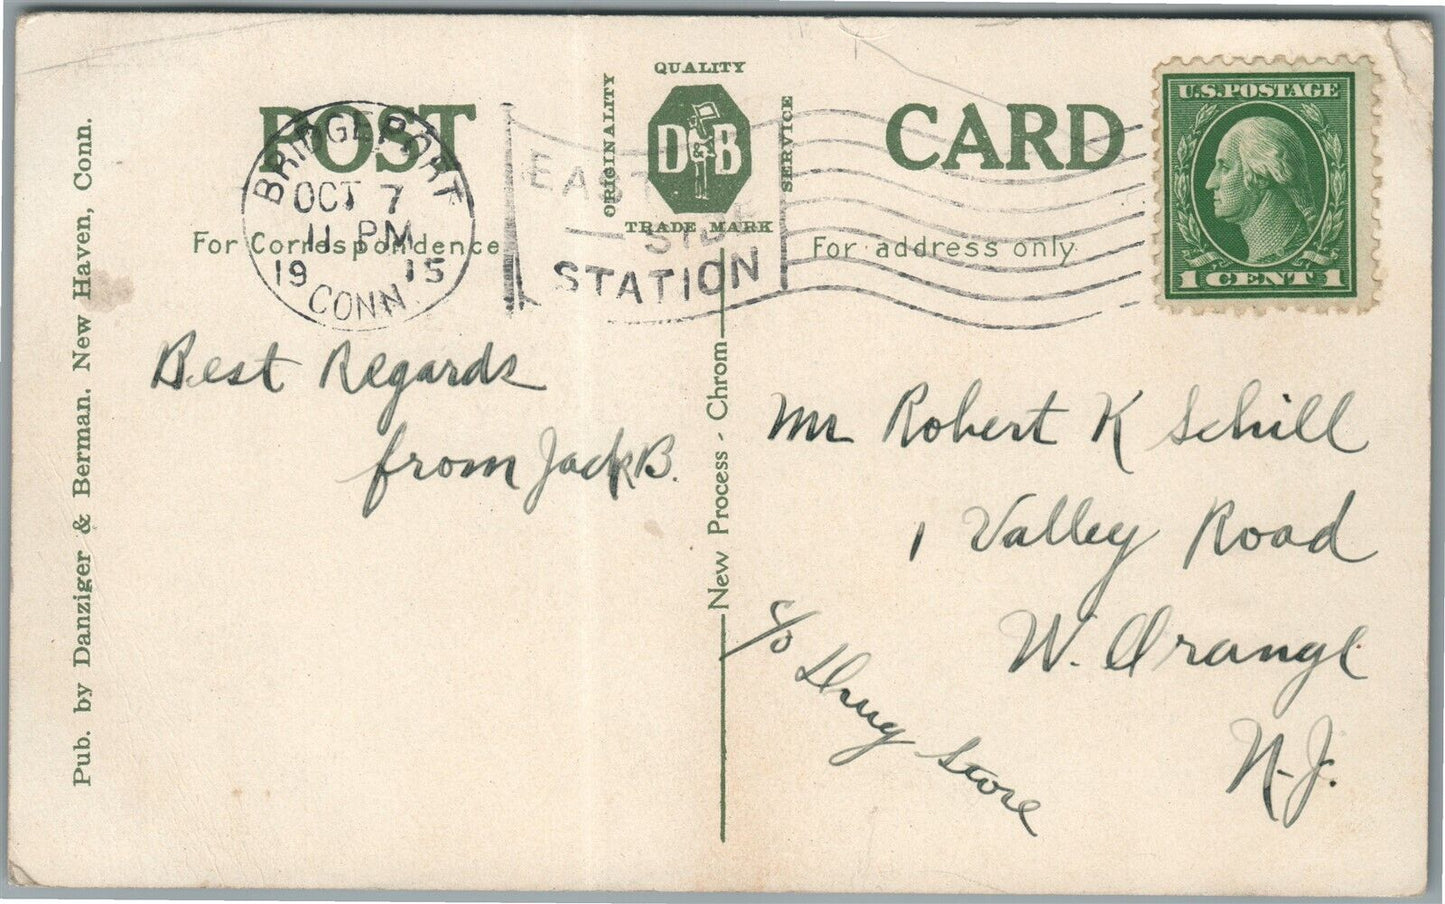 POST CARD
QUALITY
ORIGINALITY
D B
SERVICE
TRADE MARK
U.S. POSTAGE
1 CENT 1
BRIDGEPORT
OCT 7
11 PM
19 15
CONN.
EAST
SIDE
STATION
For Correspondence
For address only
Best Regards
from Jack B.
Mr Robert K Schill
1 Valley Road
W. Orange
N.J.
c/o Drug Store
New Process - Chrom
Pub. by Danziger & Berman, New Haven, Conn.